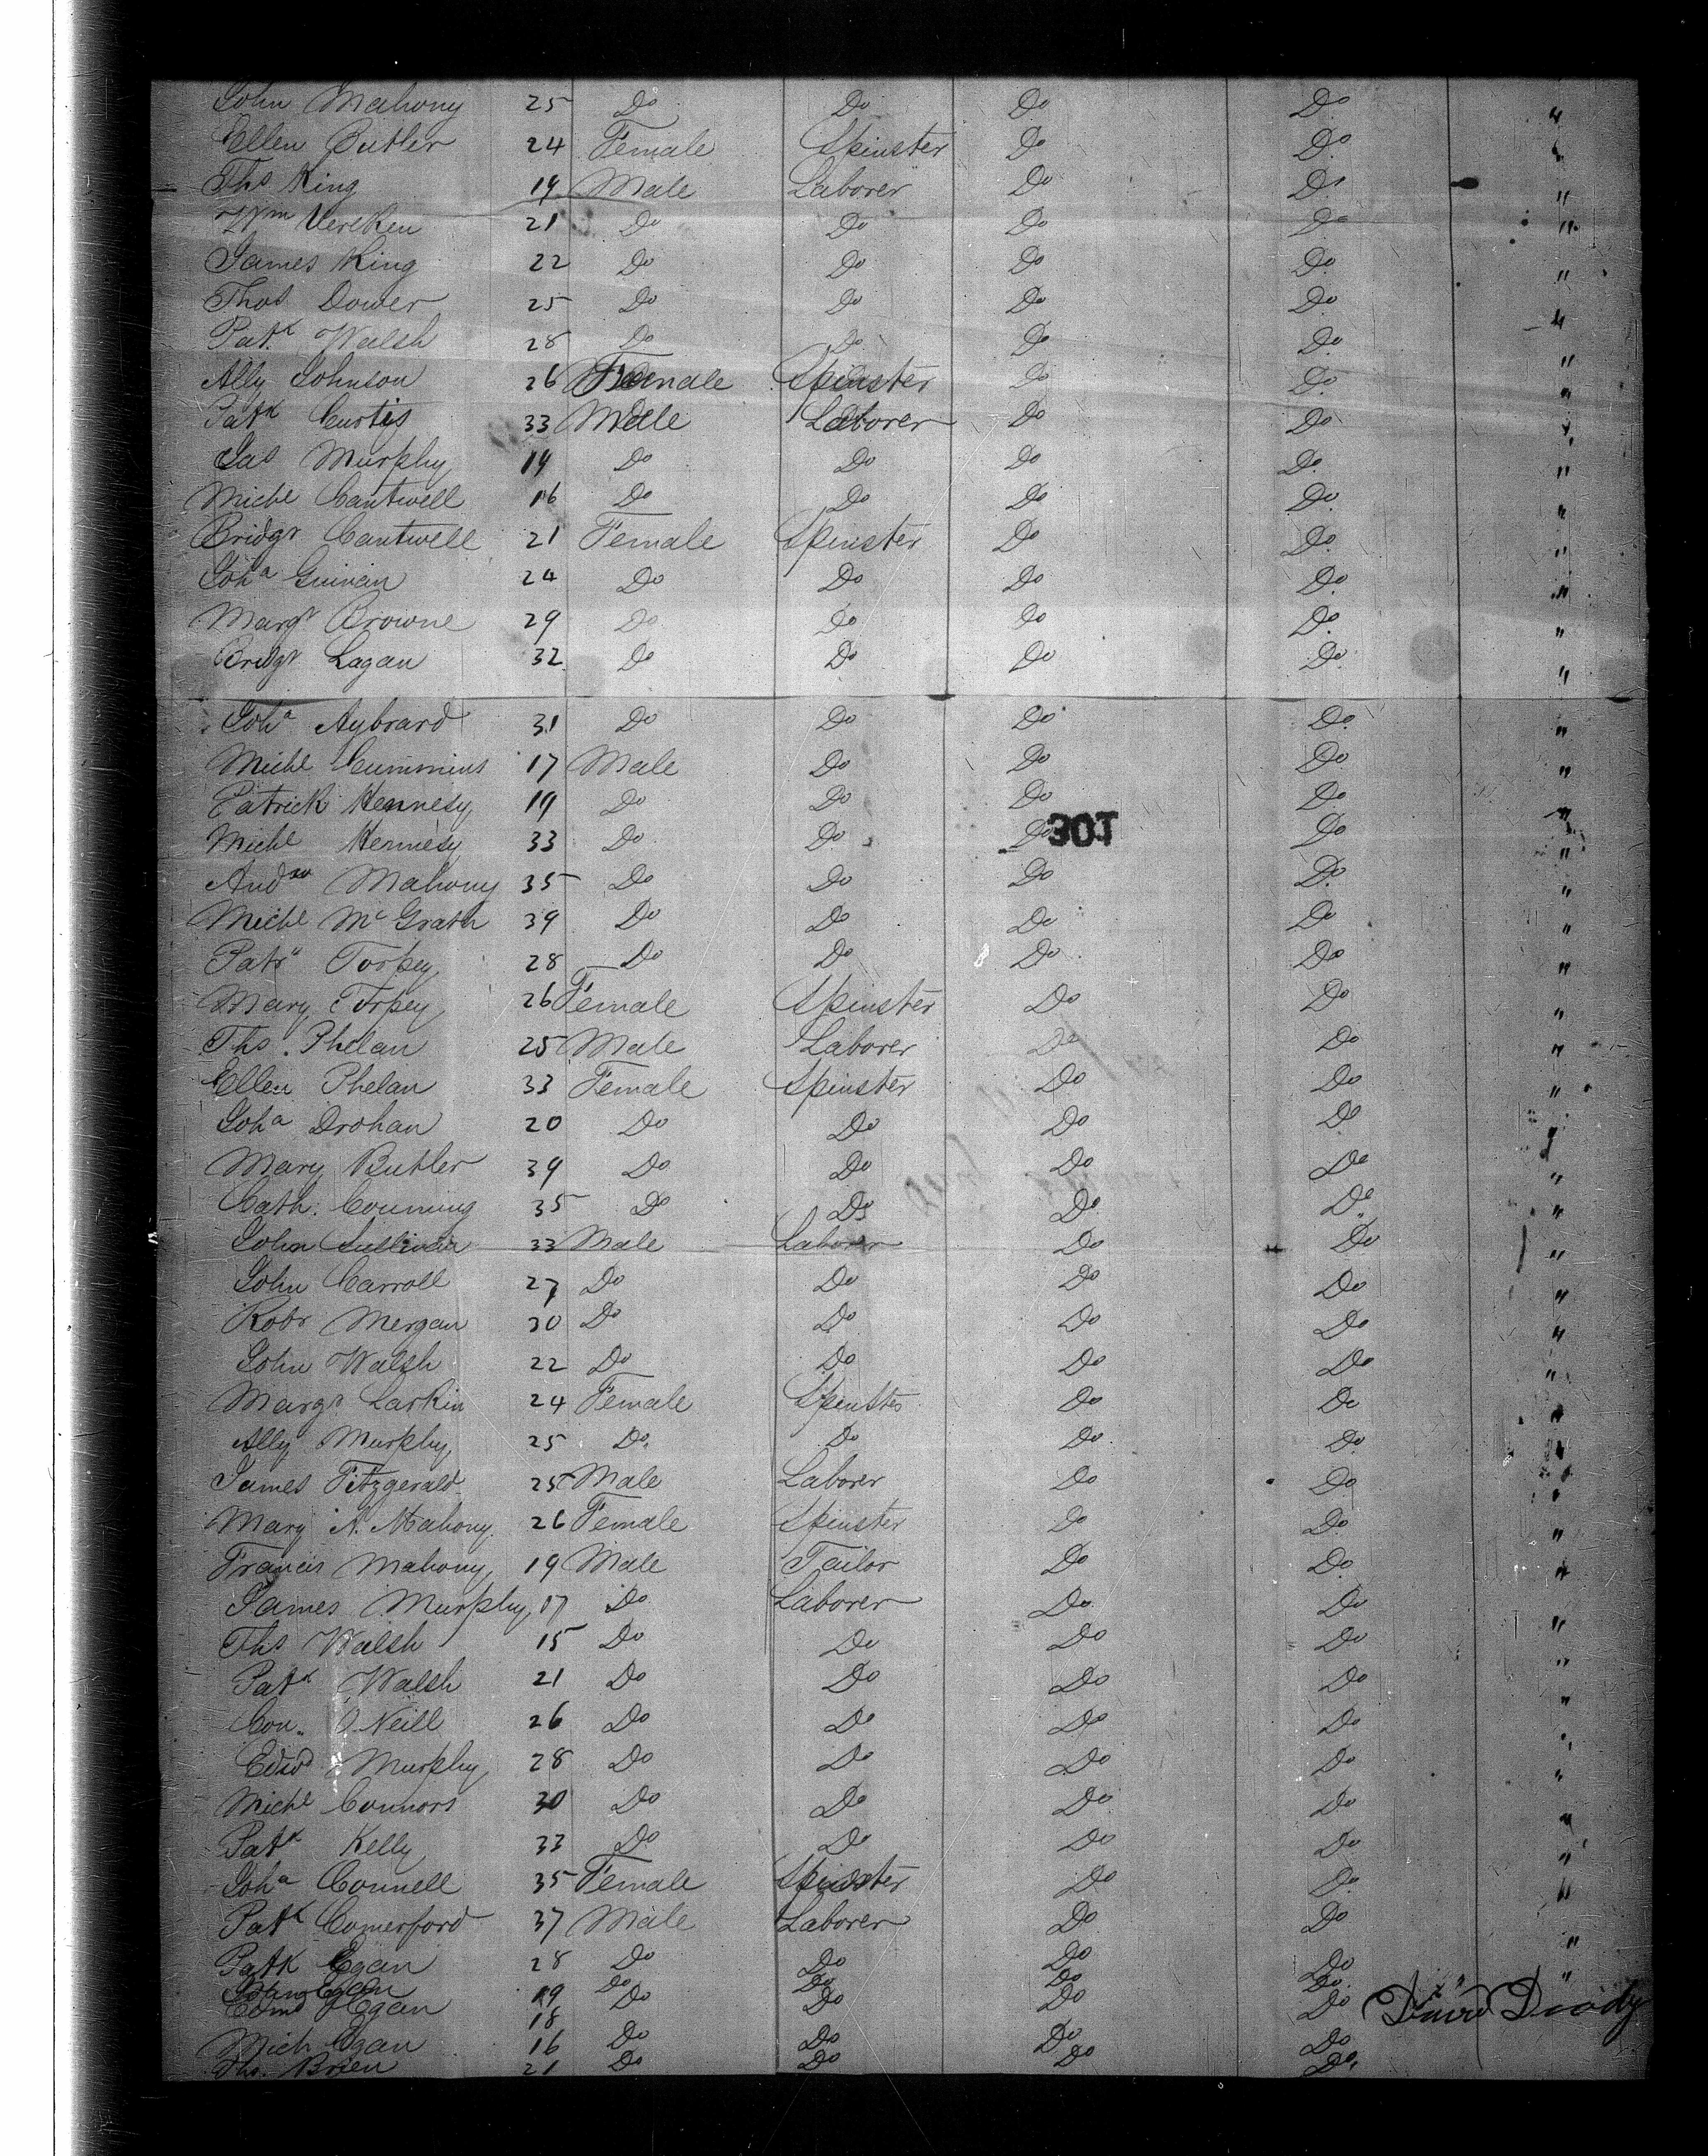 John Mahony 25 Do Do Do Do "
Ellen Butler 24 Female Spinster Do Do "
Ths King 19 Male Laborer Do Do "
Wm 21 Do Do Do Do "
James King 22 Do Do Do Do "
Thos Dower 25 Do Do Do Do "
Patk Walsh 28 Do Do Do Do "
Ally Johnson 26 Female Spinster Do Do "
Patk Curtis 33 Male Laborer Do Do "
Jas Murphy 19 Do Do Do Do "
Michl Cantwell 16 Do Do Do Do "
Bridgt Cantwell 21 Female Spinster Do Do "
Joha Guinan 24 Do Do Do Do "
Margt Browne 29 Do Do Do Do "
Bridgt Lagan 32 Do Do Do Do "
Joha 31 Do Do Do Do "
Michl Cummins 17 Male Do Do Do "
Patrick Hennesy 19 Do Do Do Do "
Michl Hennesy 33 Do Do Do Do "
301
Andw Mahony 35 Do Do Do Do "
Michl McGrath 39 Do Do Do Do "
Patk Torpey 28 Do Do Do Do "
Mary Torpey 26 Female Spinster Do Do "
Ths. Phelan 25 Male Laborer Do Do "
Ellen Phelan 33 Female Spinster Do Do "
Joha Drohan 20 Do Do Do Do "
Mary Butler 39 Do Do Do Do "
Cath. 35 Do Do Do Do "
John Sullivan 33 Male Laborer Do Do "
John Carroll 27 Do Do Do Do "
Robt Mergan 30 Do Do Do Do "
John Walsh 22 Do Do Do Do "
Margt Larkin 24 Female Spinster Do Do "
Ally Murphy 25 Do Do Do Do "
James Fitzgerald 25 Male Laborer Do Do "
Mary A. Mahony 26 Female Spinster Do Do "
Francis Mahony 19 Male Tailor Do Do "
James Murphy 17 Do Laborer Do Do "
Ths Walsh 15 Do Do Do Do "
Patk Walsh 21 Do Do Do Do "
Con. O'Neill 26 Do Do Do Do "
Edwd Murphy 28 Do Do Do Do "
Michl Connors 30 Do Do Do Do "
Patk Kelly 33 Do Do Do Do "
Joha Connell 35 Female Spinster Do Do "
Patk Comerford 37 Male Laborer Do Do "
Patk Egan 28 Do Do Do Do "
Egan 19 Do Do Do Do "
Edmd Egan 18 Do Do Do Do
Mich Egan 16 Do Do Do Do
Ths. Brien 21 Do Do Do Do